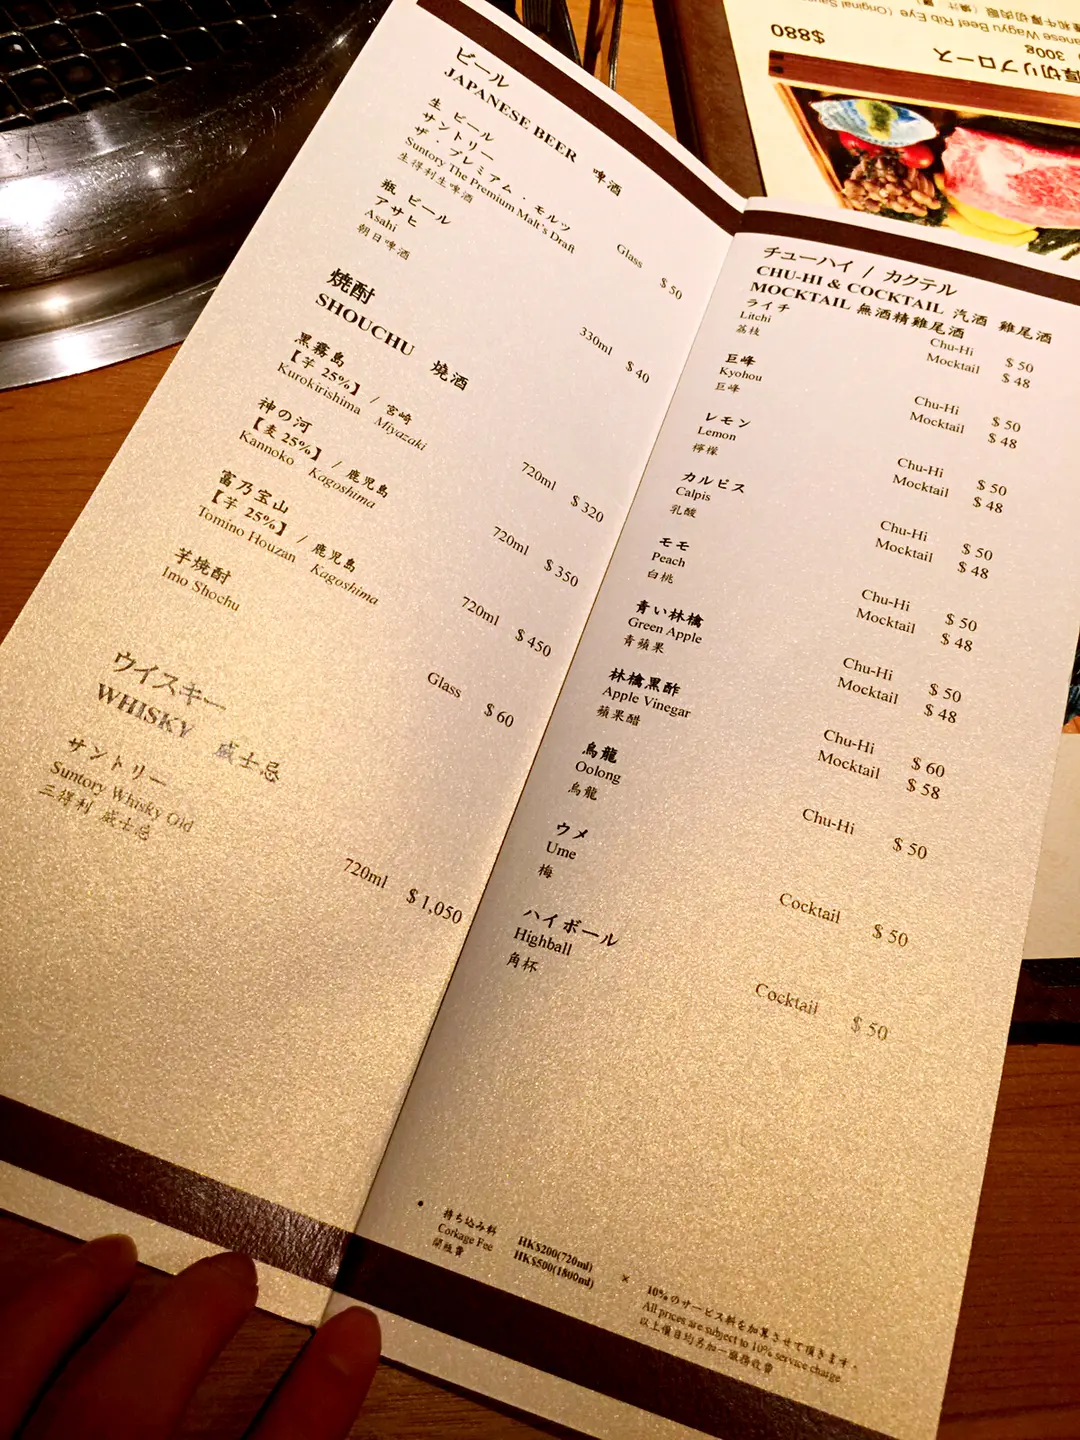 ビール
JAPANESE BEER 啤酒
生 ビール
サントリー
ザ・プレミアム・モルツ
Suntory The Premium Malt's Draft
生得利生啤酒
Glass $ 50
瓶 ビール
アサヒ
Asahi
朝日啤酒
330ml $ 40
焼酎
SHOUCHU 燒酒
黒霧島
【芋 25%】 / 宮崎
Kurokirishima Miyazaki
720ml $ 320
神の河
【麦 25%】 / 鹿児島
Kannoko Kagoshima
720ml $ 350
富乃宝山
【芋 25%】 / 鹿児島
Tomino Houzan Kagoshima
720ml $ 450
芋焼酎
Imo Shochu
Glass $ 60
ウイスキー
WHISKY 威士忌
サントリー
Suntory Whisky Old
三得利 威士忌
720ml $ 1,050
チューハイ / カクテル
CHU-HI & COCKTAIL 汽酒 雞尾酒
MOCKTAIL 無酒精雞尾酒
ライチ
Litchi
荔枝
Chu-Hi $ 50
Mocktail $ 48
巨峰
Kyohou
巨峰
Chu-Hi $ 50
Mocktail $ 48
レモン
Lemon
檸檬
Chu-Hi $ 50
Mocktail $ 48
カルピス
Calpis
乳酸
Chu-Hi $ 50
Mocktail $ 48
モモ
Peach
白桃
Chu-Hi $ 50
Mocktail $ 48
青い林檎
Green Apple
青蘋果
Chu-Hi $ 50
Mocktail $ 48
林檎黒酢
Apple Vinegar
蘋果醋
Chu-Hi $ 60
Mocktail $ 58
烏龍
Oolong
烏龍
Chu-Hi $ 50
ウメ
Ume
梅
Cocktail $ 50
ハイボール
Highball
角杯
Cocktail $ 50
● 持ち込み料
Corkage Fee HK$200(720ml)
開瓶費 HK$500(1800ml)
× 10%のサービス料を加算させて頂きます。
All prices are subject to 10% service charge
以上價目均另加一服務收費
厚切リブロース
300g
anese Wagyu Beef Rib Eye (Original Sau
$880